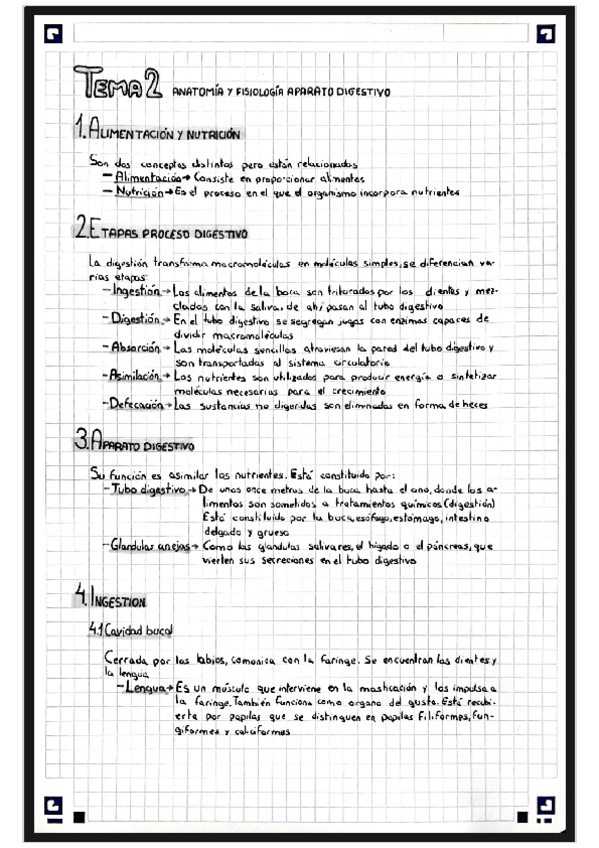 TEMA 2 ANATOMÍA Y FISIOLOGÍA APARATO DIGESTIVO
1. ALIMENTACIÓN Y NUTRICIÓN
Son dos conceptos distintos pero están relacionados
- Alimentación → Consiste en proporcionar alimentos
- Nutrición → Es el proceso en el que el organismo incorpora nutrientes
2. ETAPAS PROCESO DIGESTIVO
La digestión transforma macromoléculas en moléculas simples, se diferencian va-
rias etapas:
- Ingestión → Los alimentos de la boca son triturados por los dientes y mez-
clados con la saliva, de ahí pasan al tubo digestivo
- Digestión → En el tubo digestivo se segregan jugos con enzimas capaces de
dividir macromoléculas
- Absorción → Las moléculas sencillas atraviesan la pared del tubo digestivo y
son transportadas al sistema circulatorio
- Asimilación → Los nutrientes son utilizados para producir energía o sintetizar
moléculas necesarias para el crecimiento
- Defecación → Las sustancias no digeridas son eliminadas en forma de heces
3. APARATO DIGESTIVO
Su función es asimilar los nutrientes. Está constituido por:
- Tubo digestivo → De unos once metros de la boca hasta el ano, donde los a-
limentos son sometidos a tratamientos químicos (digestión)
Está constituido por la boca, esófago, estómago, intestino
delgado y grueso
- Glandulas anejas → Como las glandulas salivares, el hígado o el páncreas, que
vierten sus secreciones en el tubo digestivo
4. INGESTION
4.1 Cavidad bucal
Cerrada por los labios, comunica con la faringe. Se encuentran los dientes y
la lengua
- Lengua → Es un músculo que interviene en la masticación y los impulsa a
la faringe. También funciona como organo del gusto. Está recubi-
erta por papilas que se distinguen en papilas filiformes, fun-
giformes y caliciformes